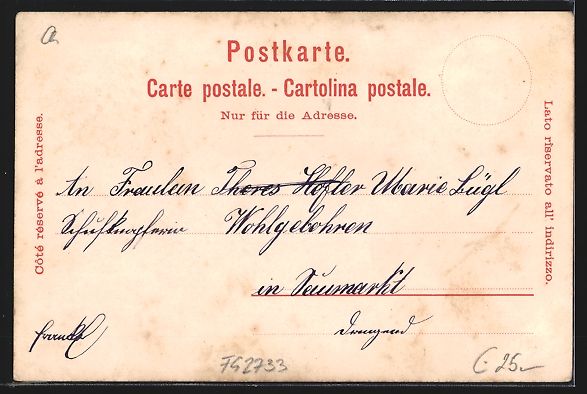 Postkarte.
Carte postale. - Cartolina postale.
Nur für die Adresse.
Côté réservé à l'adresse.
Lato riservato all' indirizzo.
An Fraulein Theres Höfler Marie Lügl
Wohlgebohren
in Saumarkt
Dringend
752733
€ 25.-